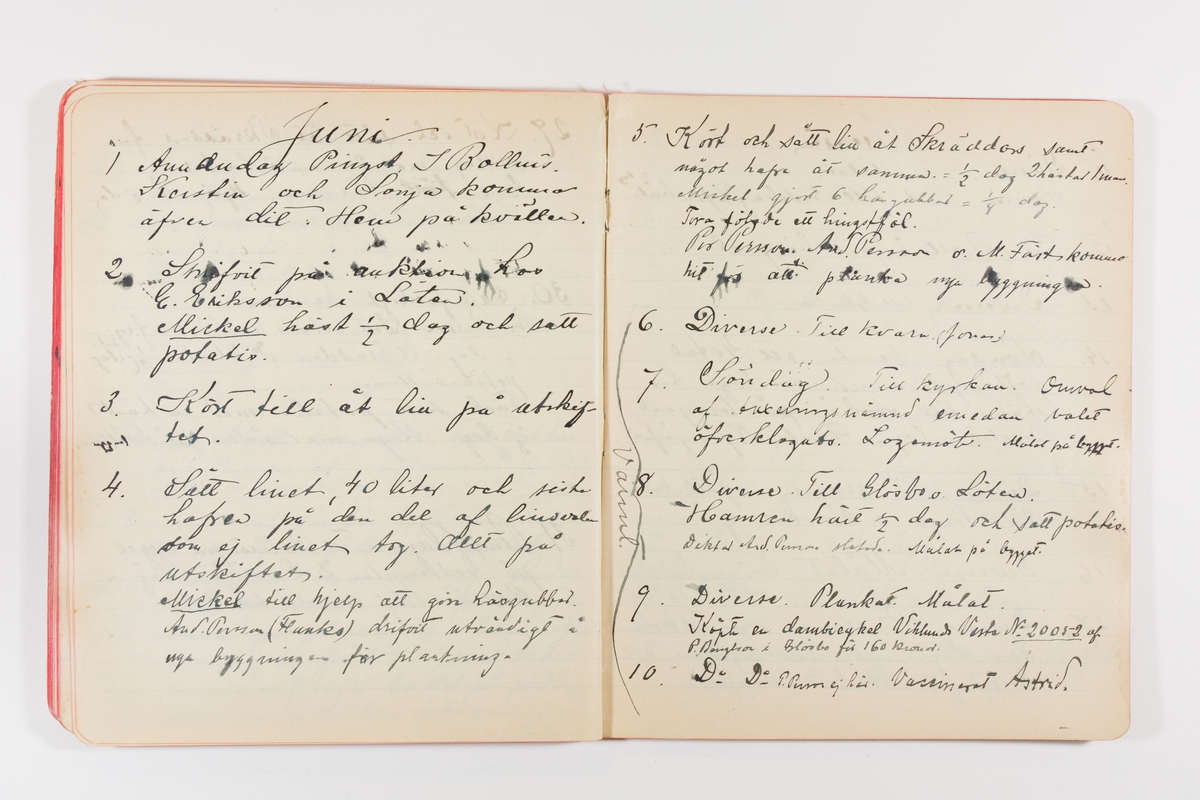 Juni
1 Annandag Pingst I Bollnäs.
Kerstin och Sonja kommo
äfven dit. Hem på kvällen.
2. Skrifvit på auktion hos
E. Eriksson i Löten.
Mickel häst ½ dag och satt
potatis.
3. Kört till åt lin på utskif-
tet.
4. Sått linet, 40 liter och sista
hafren på den del af linsvalen
som ej linet tog. Allt på
utskiftet.
Mickel till hjelp att göra häsgubbar.
And. Persson (Flanks) drifvit utvändigt å
nya byggningen för plankning.
5. Kört och sått lin åt Skräddars samt
något hafre åt samma. = ½ dag 2 hästar 1 man.
Mickel gjort 6 häsgubbar = ¼ dag.
Tora följde ett hingstföl.
Per Persson. And. Persson o. M. Fast kommo
hit för att planka nya byggningen.
6. Diverse. Till kvarn (Jonas)
7. Söndag. Till kyrkan. Omval
af taxeringsnämnd emedan valet
öfverklagats. Logemöte. Målat på bygget.
Varmt.
8. Diverse. Till Glösbo o. Löten.
Hamren häst ½ dag och satt potatis.
And. Persson Målat på bygget.
9. Diverse. Plankat. Målat.
Köpte en dambicykel Viklunds Vesta No 20052 af
P. Bengtson i Glösbo för 160 kronor.
10. Do Do P. Persson ej här. Vaccinerat Astrid.